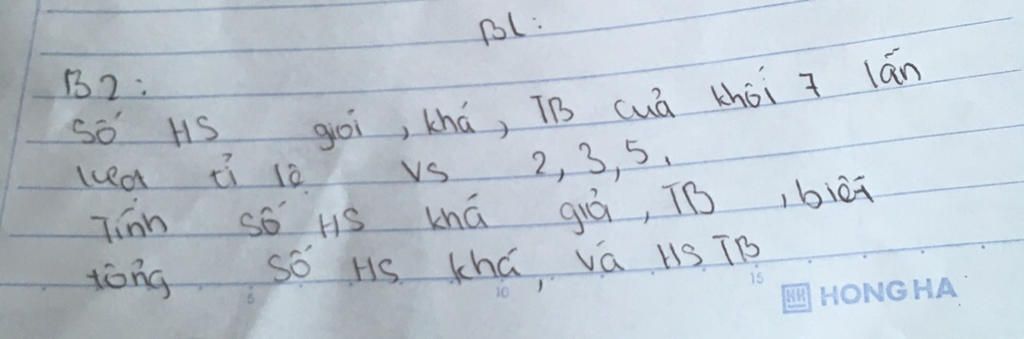 BL:
B2:
Số HS giỏi, khá, TB của khối 7 lần
lượt tỉ lệ vs 2, 3, 5.
Tính số HS khá giỏi, TB, biết
tổng số HS khá, và HS TB
5 10 15
HH HONG HA